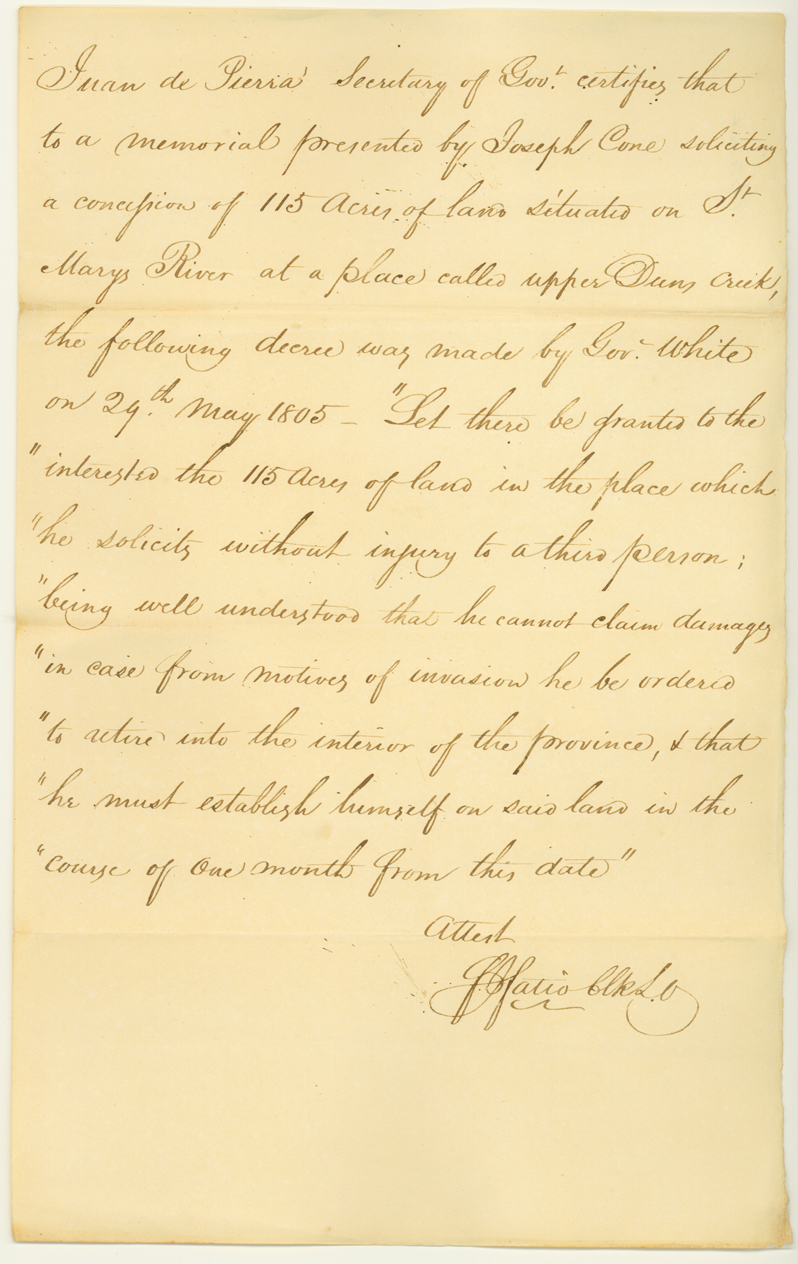 Juan de Pierra Secretary of Govt. certifies that
to a memorial presented by Joseph Cone soliciting
a concession of 115 Acres of land situated on St.
Marys River at a place called upper Duns Creek,
the following decree was made by Gov. White
on 29th. May 1805 — "Let there be granted to the
"interested the 115 Acres of land in the place which
"he solicits without injury to a third person;
"being well understood that he cannot claim damages
"in case from motives of invasion he be ordered
"to retire into the interior of the province, & that
"he must establish himself on said land in the
"course of One month from this date"
Attest
Fatio Clk L.O